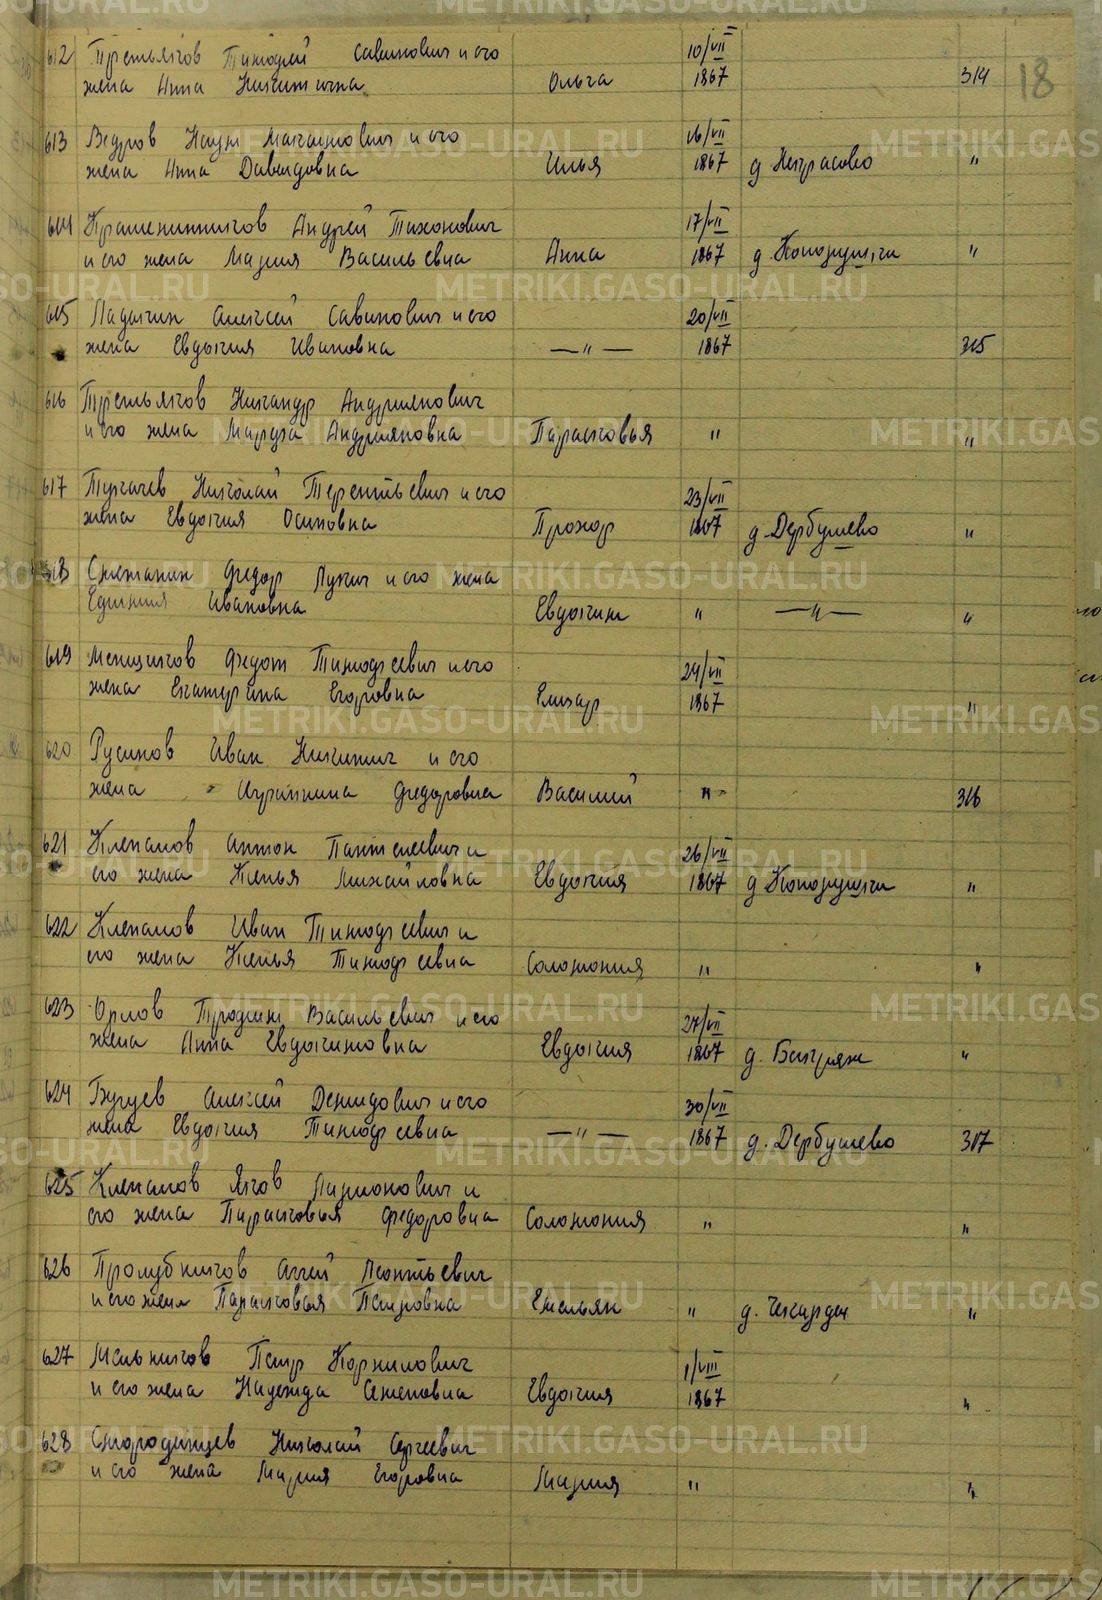 METRIKI.GASO-URAL.RU
18
612 Третьяков Тимофей Савинович и его 10/VII
жена Анна Никитична Ольга 1867 314
613 Ведров Наум Максимович и его 16/VII
жена Анна Давыдовна Илья 1867 д. Некрасово "
614 Крашенинников Андрей Тихонович 17/VII
и его жена Мария Васильевна Анна 1867 д. Копорушки "
615 Ладыгин Алексей Савинович и его 20/VII
жена Евдокия Ивановна —"— 1867 315
616 Третьяков Никандр Андриянович
и его жена Марфа Андрияновна Парасковья " "
617 Тукачев Николай Терентьевич и его 23/VII
жена Евдокия Осиповна Прохор 1867 д. Дербушево "
618 Сметанин Федор Лукич и его жена
Ивановна Евдоким " —"— "
619 Меньшиков Федот Тимофеевич и его 24/VII
жена Екатерина Егоровна Елизар 1867 "
620 Русинов Иван Никитич и его
жена Агрипина Федоровна Василий " 316
621 Клепалов Антон Пантелеевич и 26/VII
его жена Ксенья Михайловна Евдокия 1867 д. Копорушки "
622 Клепалов Иван Тимофеевич и
его жена Ксенья Тимофеевна Соломония " "
623 Орлов Трофим Васильевич и его 27/VII
жена Анна Евдокимовна Евдокия 1867 д. Бакряж "
624 Бугуев Алексей Демидович и его 30/VII
жена Евдокия Тимофеевна —"— 1867 д. Дербушево 317
625 Клепалов Яков Ларионович и
его жена Парасковья Федоровна Соломония " "
626 Пролубников Аггей Леонтьевич
и его жена Парасковья Петровна Емельян " д. Чекарды "
627 Мельников Петр Корнилович 1/VIII
и его жена Надежда Семеновна Евдокия 1867 "
628 Скородинцев Николай Сергеевич
и его жена Мария Егоровна Мария " "